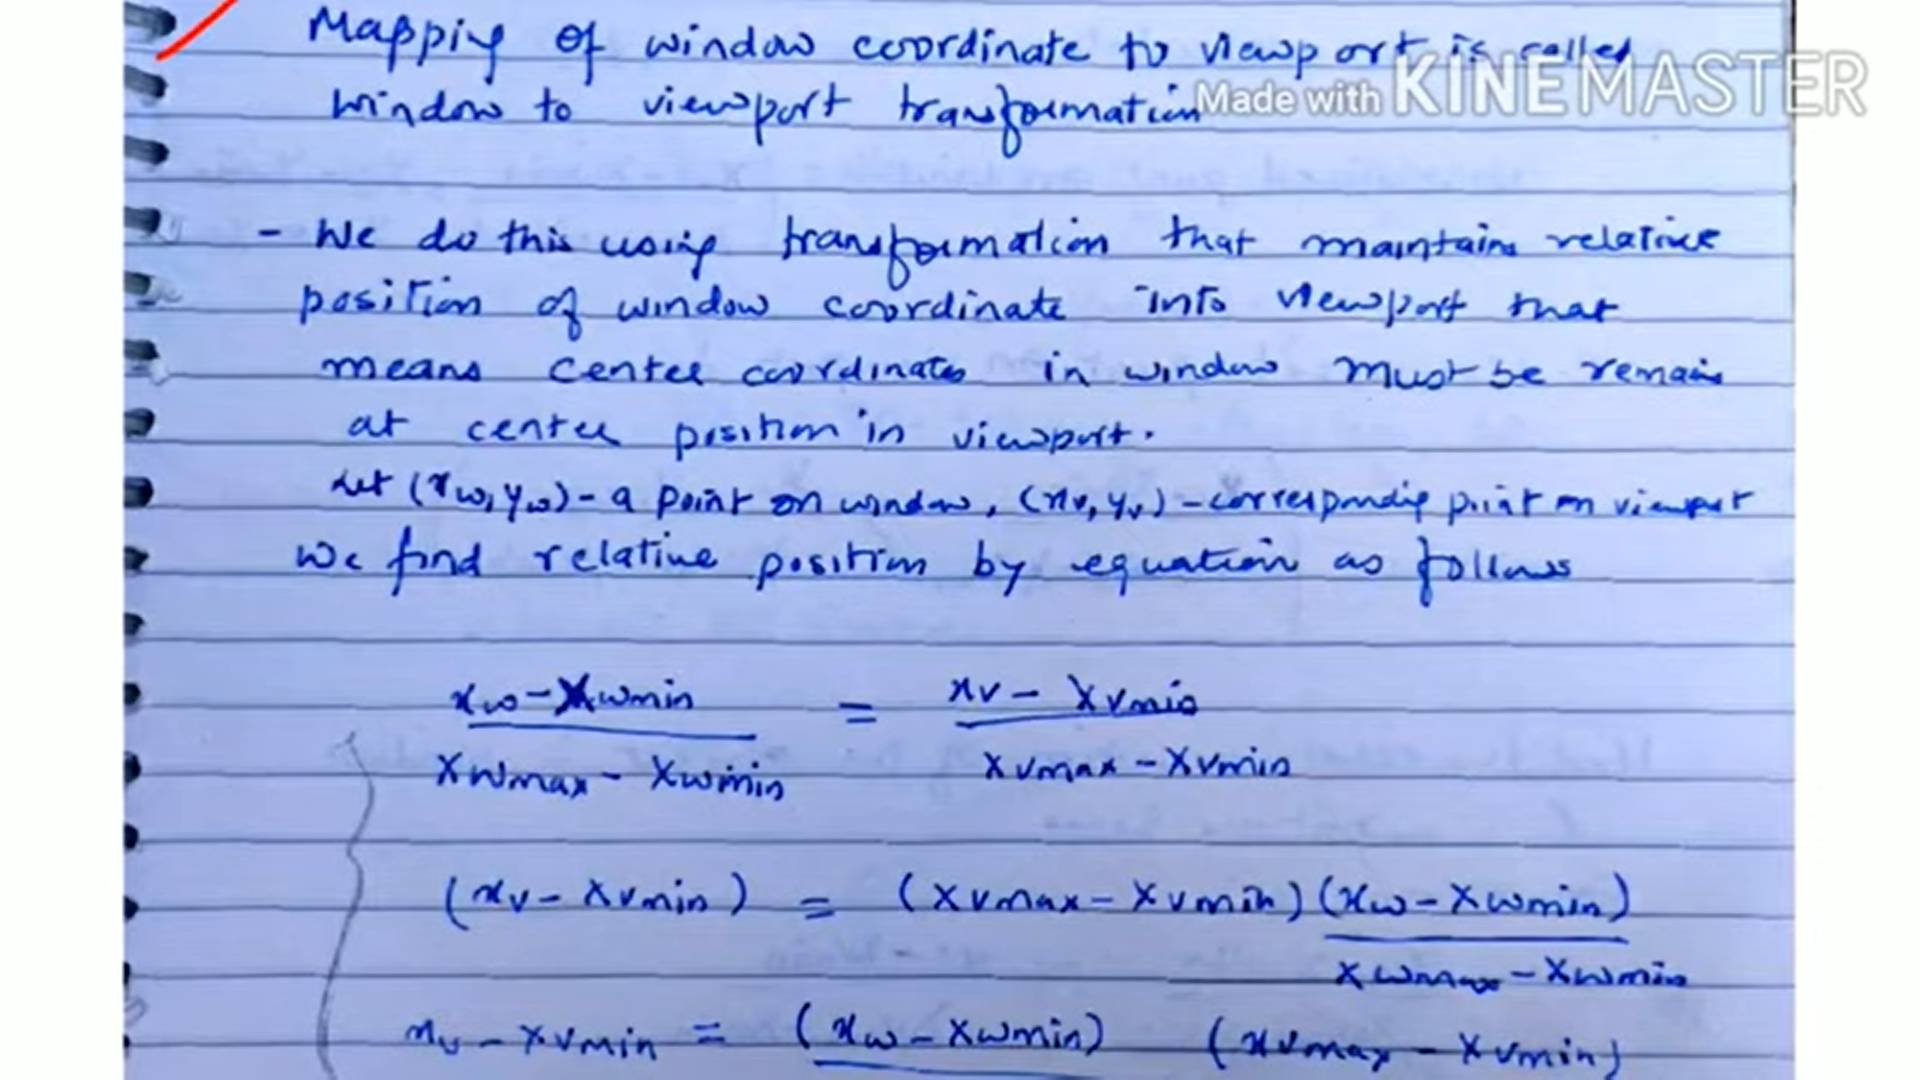 Mapping of window coordinate to viewport is called
Made with KINEMASTER
window to viewport transformation
- We do this using transformation that maintains relative
position of window coordinate into viewport that
means center coordinates in window must be remain
at center position in viewport.
Let (xw, yw) - a point on window, (xv, yv) - corresponding point on viewport
We find relative position by equation as follows
xw - Xwmin = xv - Xvmin
Xwmax - Xwmin Xvmax - Xvmin
(xv - Xvmin) = (Xvmax - Xvmin) (xw - Xwmin)
Xwmax - Xwmin
xv - Xvmin = (xw - Xwmin) (xvmax - Xvmin)